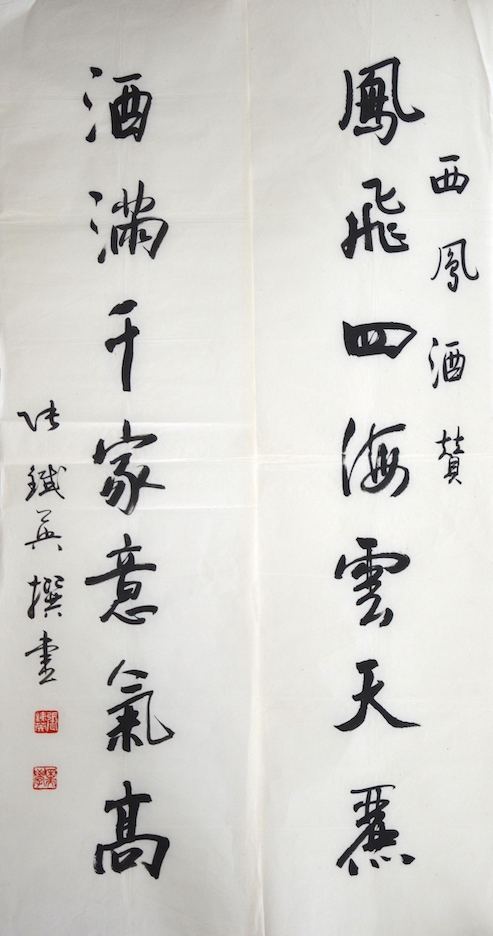 西鳳酒賛
鳳飛四海雲天麗
酒滿千家意氣高
张鐵英撰書